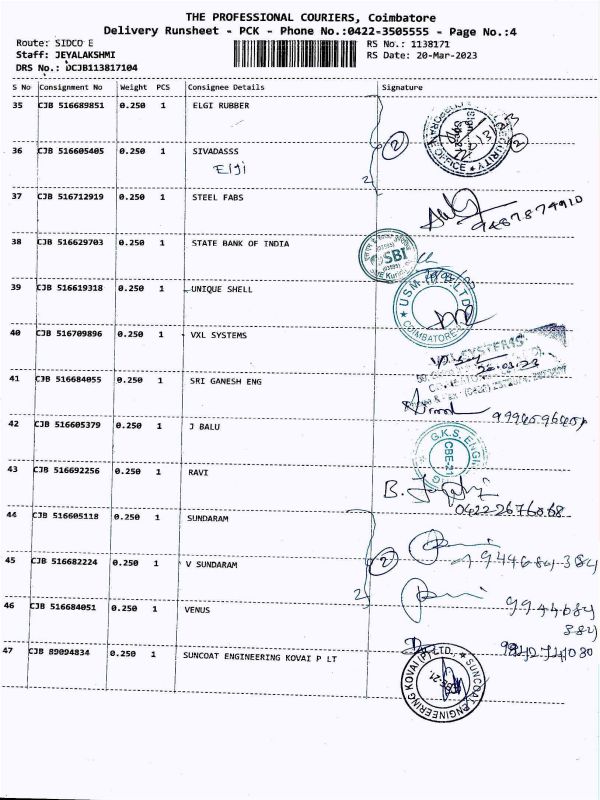 THE PROFESSIONAL COURIERS, Coimbatore
Delivery Runsheet - PCK - Phone No.:0422-3505555 - Page No.:4
Route: SIDCO E
RS No.: 1138171
Staff: JEYALAKSHMI
RS Date: 20-Mar-2023
DRS No.: DCJB113817104
S No Consignment No Weight PCS Consignee Details Signature
35 CJB 516689851 0.250 1 ELGI RUBBER
36 CJB 516605405 0.250 1 SIVADASSS
Elji
2
2
2
SECURITY
OFFICE
37 CJB 516712919 0.250 1 STEEL FABS
9487874910
38 CJB 516629703 0.250 1 STATE BANK OF INDIA
SBI
39 CJB 516619318 0.250 1 UNIQUE SHELL
USM
LTD
COIMBATORE
40 CJB 516709896 0.250 1 VXL SYSTEMS
SYSTEMS
20.03.23
41 CJB 516684055 0.250 1 SRI GANESH ENG
42 CJB 516605379 0.250 1 J BALU
G.K.S. ENGI
CBE-21
43 CJB 516692256 0.250 1 RAVI
B.
0422-2676068
44 CJB 516605118 0.250 1 SUNDARAM
45 CJB 516682224 0.250 1 V SUNDARAM
2
2
46 CJB 516684051 0.250 1 VENUS
9944684
384
47 CJB 89094834 0.250 1 SUNCOAT ENGINEERING KOVAI P LT
SUNCOAT ENGINEERING KOVAI (P) LTD.